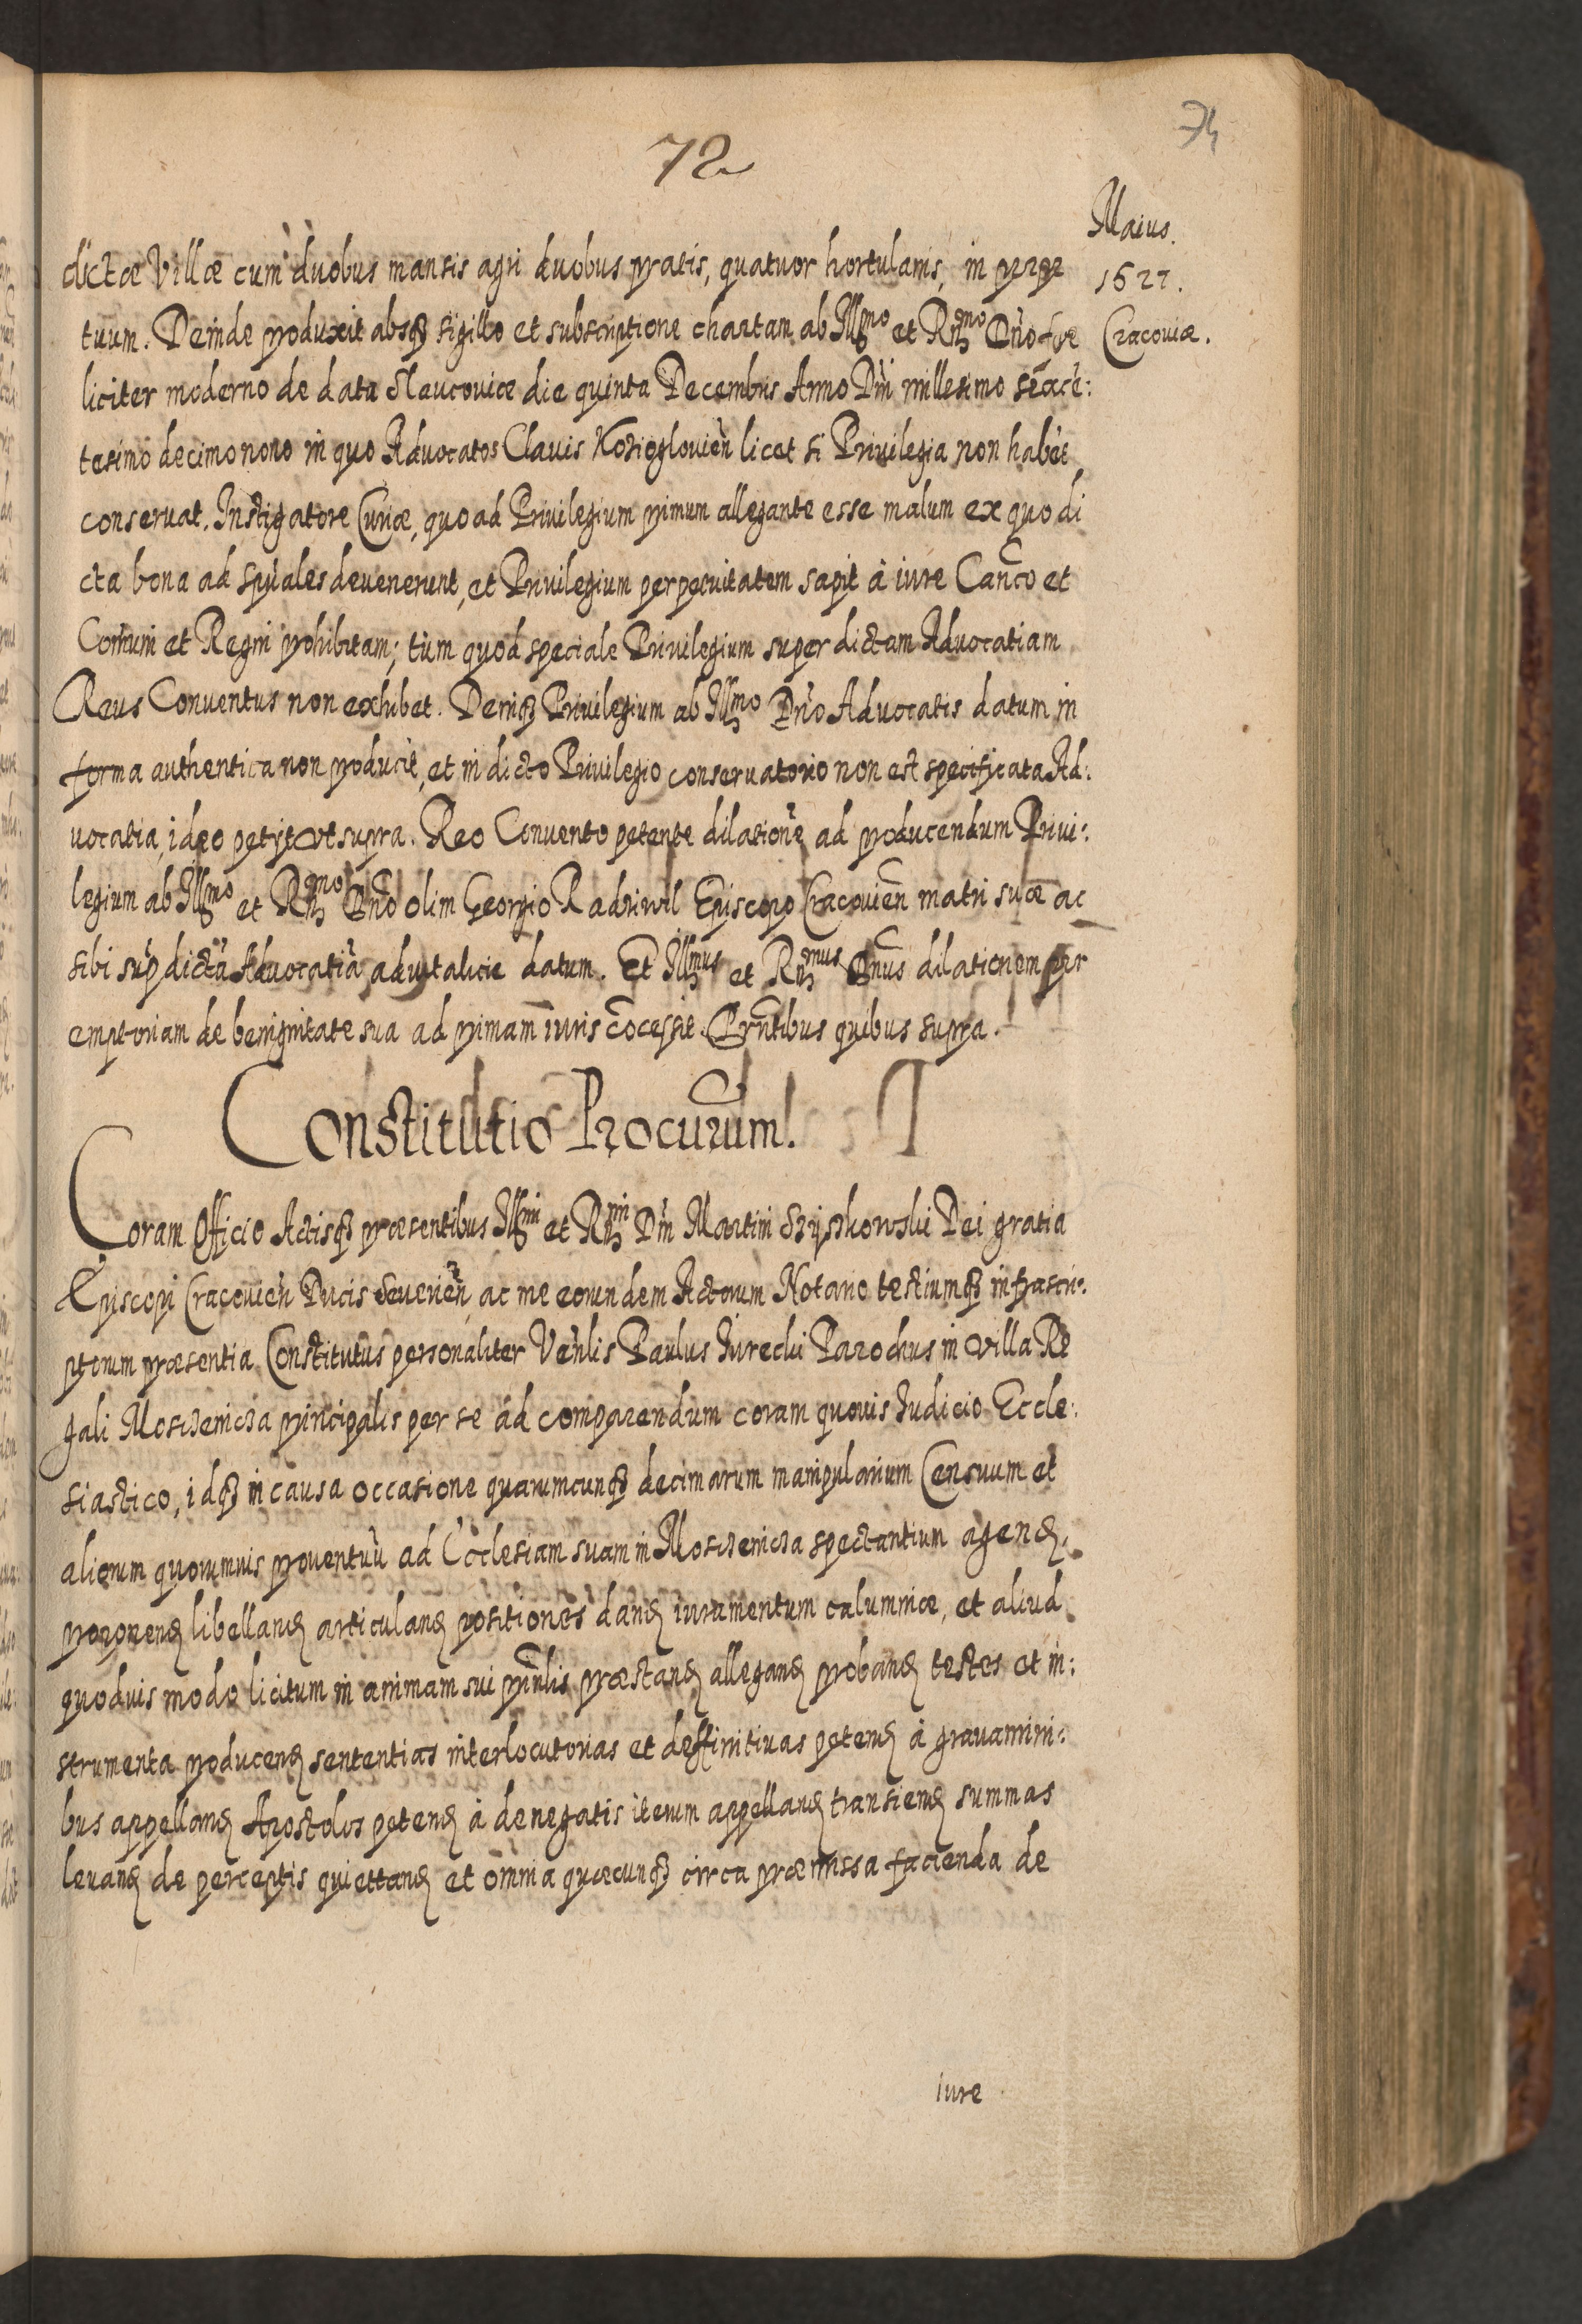 74
72
Maius.
1621.
Cracoviæ.
dictæ Villæ cum duobus mansis agri duobus pratis, quatuor hortulanis, in perpe
tuum. Deinde produxit absq3 sigillo et subscriptione chartam ab Illmo et Rmo Dno fœ
liciter moderno de data Slaucoviæ die quinta Decembris Anno Dni millesimo sexcē:
tesimo decimonono in quo Advocatos Clauis Kozieglovien̄ licet si Privilegia non habēt
conservat. Instigatore Curiæ, quo ad Privilegium primum allegante esse malum ex quo di
cta bona ad sp̄uales devenerunt, et Privilegium perpetuitatem sapit à iure Canco et
Com̄uni et Regni prohibitam; tùm quod speciale Privilegium super dictam Advocatiam
Reus Conventus non exhibet. Deniq3 Privilegium ab Illmo Dn̄o Advocatis datum in
forma authentica non producit, et in dicto Privilegio conservatorio non est specificata Ad:
vocatia, ideo petijt vt supra. Reo Convento petente dilationē ad producendum Privi:
legium ab Illmo et Rmo Dn̄o olim Georgio Radziwil Episcopo Cracovien̄ matri suæ ac
sibi sup dictā Advocatiā aduitalitie datum. Et Illmus et Rmus Dn̄us dilationem per
emptoriam de benignitate sua ad primam iuris cōcessit. Prn̄tibus quibus supra.
Constitutio Procurum.
Coram Officio Actisq3 præsentibus Illmi et Rmi Dn̄i Martini Szyszkowski Dei gratia
Episcopi Cracovien̄ Ducis Severien̄ ac me eorundem Actorum Notario testiumq3 infrascri:
ptorum præsentia Constitutus personaliter Ven̄lis Paulus Jurecki Parochus in Villa Re
gali Moszczenicza principalis per se ad comparendum coram quovis Judicio Eccle:
siastico, idq3 in causa occasione quarumcunq3 decimarum manipularium Censuum et
aliorum quorumvis proventuū ad Ecclesiam suam in Moszczenicza spectantium agend.
proponend libelland articuland positiones dand iuramentum calumniæ, et aliud
quoduis modo licitum in animam sui prin̄lis præstand allegand proband testes et in:
strumenta producend sententias interlocutorias et deffinitivas petend à gravamini:
bus appelland Apostolos petend à denegatis iterum appelland transiend summas
levand de perceptis quiettand et omnia quæcunq3 circa præmissa facienda de
iure